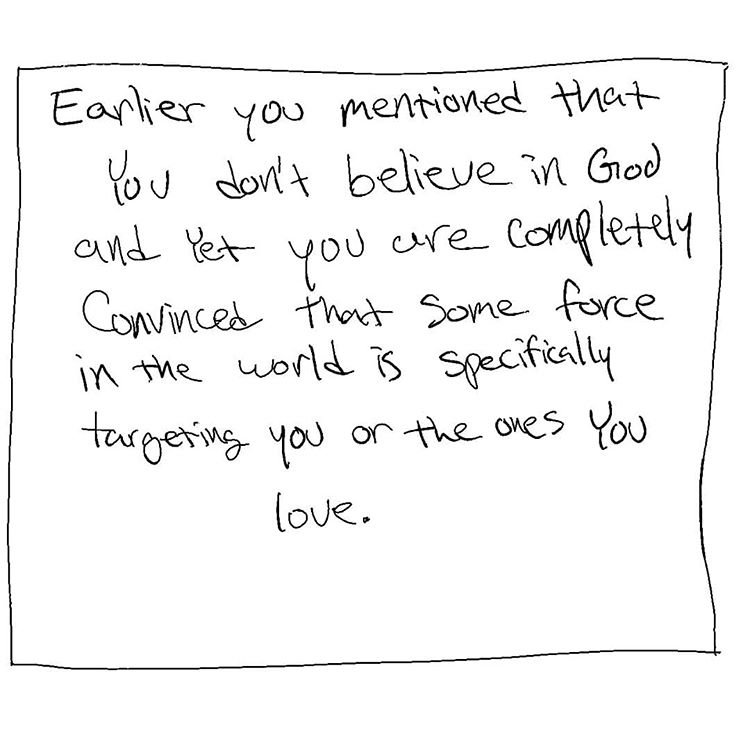 Earlier you mentioned that
You don't believe in God
and Yet you are completely
Convinced that Some force
in the world is specifically
targeting you or the ones You
love.